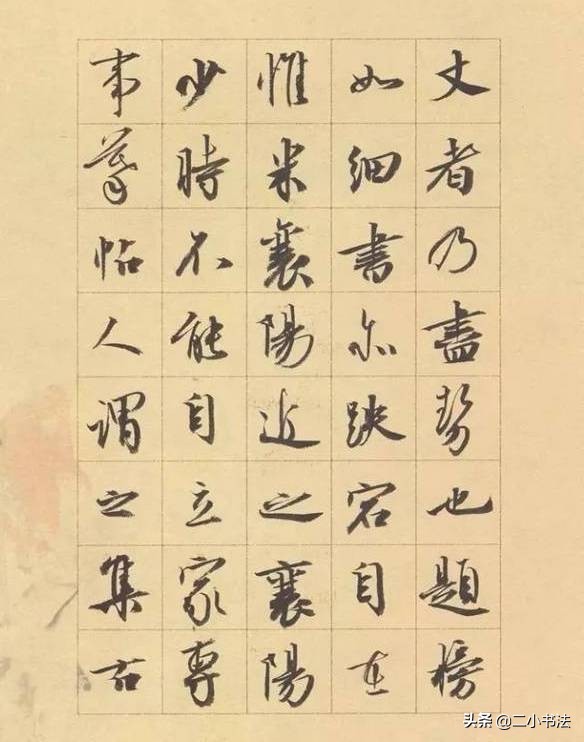 丈者乃盡勢也題榜
如細書亦跌宕自在
惟米襄陽近之襄陽
少時不能自立家專
事摹帖人謂之集古
头条 @二小书法